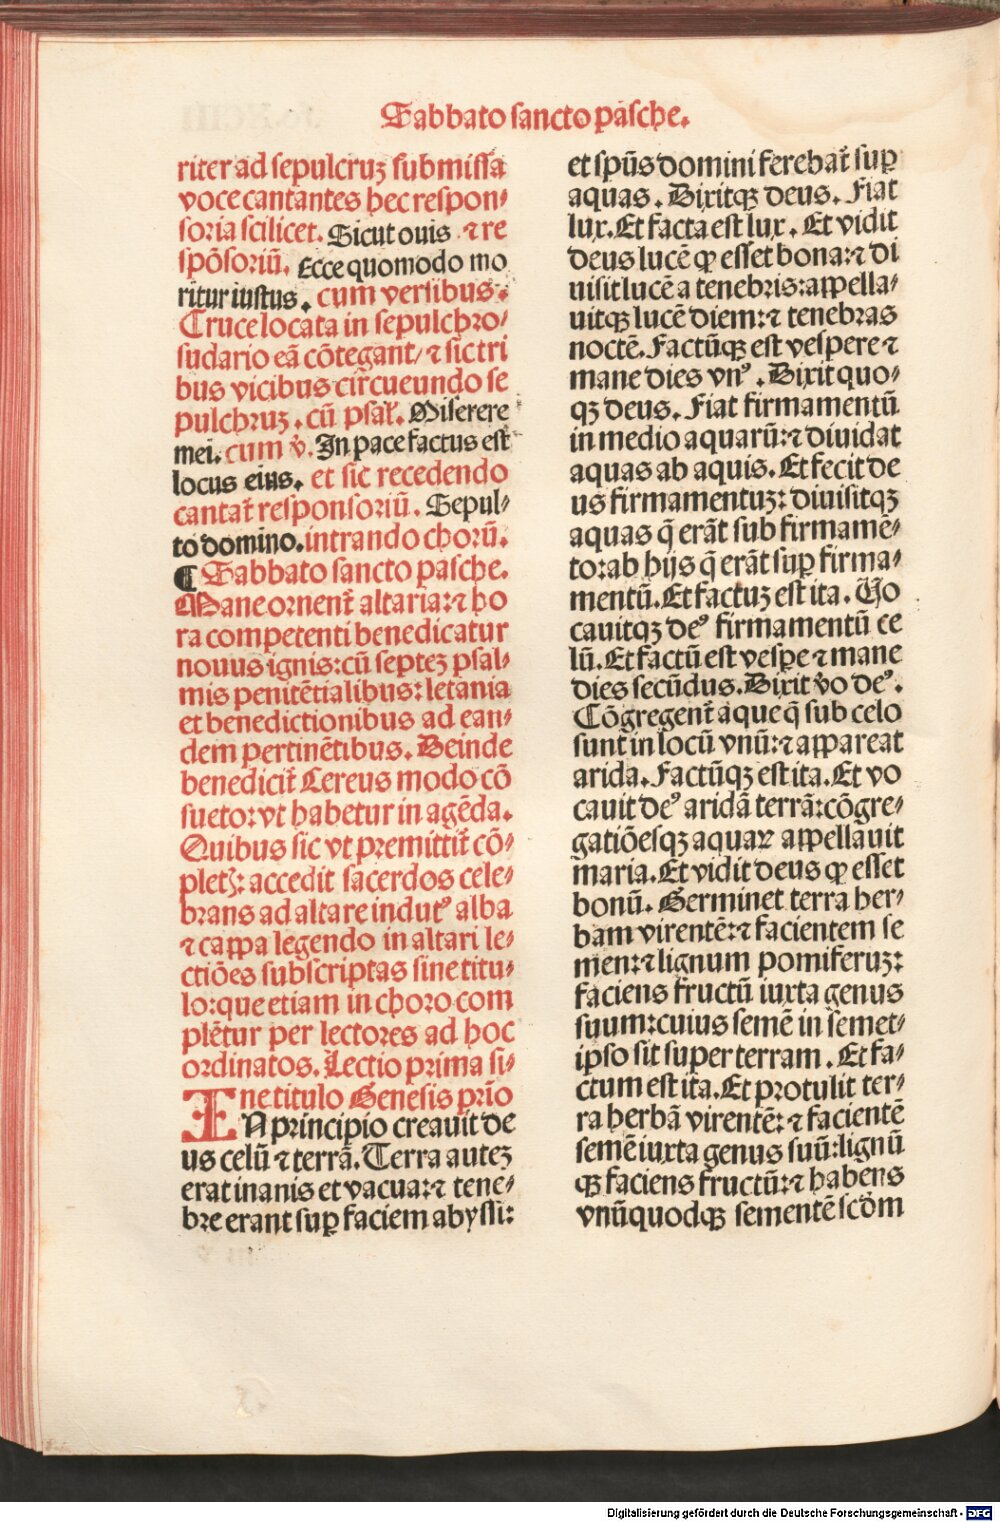 Sabbato sancto pasche.
riter ad sepulcruꝫ submissa
voce cantantes hec respon⸗
soria scilicet. Sicut ouis ⁊ re
spōsoriū. Ecce quomodo mo
ritur iustus. cum versibus.
Cruce locata in sepulchro/
sudario eā cōtegant/ ⁊ sic tri
bus vicibus circueundo se
pulchruꝫ. cū psal̄. Miserere
mei. cum v̊. In pace factus est
locus eius. et sic recedendo
cantat̄ responsoriū. Sepul⸗
to domino. intrando chorū.
¶ Sabbato sancto pasche.
Mane ornent̄ altaria: ⁊ ho
ra competenti benedicatur
nouus ignis: cū septeꝫ psal⸗
mis penitētialibus: letania
et benedictionibus ad ean⸗
dem pertinētibus. Deinde
benedicit̄ Cereus modo cō
sueto: vt habetur in agēda.
Quibus sic vt premittit̄ cō⸗
pletꝭ: accedit sacerdos cele⸗
brans ad altare indutꝰ alba
⁊ cappa legendo in altari le⸗
ctiōes subscriptas sine titu⸗
lo: que etiam in choro com
plētur per lectores ad hoc
ordinatos. Lectio prima si⸗
ne titulo Genesis prīo
IN principio creauit de
us celū ⁊ terrā. Terra auteꝫ
erat inanis et vacua: ⁊ tene⸗
bre erant suꝑ faciem abyssi:
et spūs domini ferebat̄ suꝑ
aquas. Dixitqꝫ deus. Fiat
lux. Et facta est lux. Et vidit
deus lucē ꝙ esset bona: ⁊ di
uisit lucē a tenebris: appella⸗
uitqꝫ lucē diem: ⁊ tenebras
noctē. Factūqꝫ est vespere ⁊
mane dies vnꝰ. Dixit quo⸗
qꝫ deus. Fiat firmamentū
in medio aquarū: ⁊ diuidat
aquas ab aquis. Et fecit de
us firmamentuꝫ: diuisitqꝫ
aquas q̄ erāt sub firmamē⸗
to: ab hijs q̄ erāt suꝑ firma⸗
mentū. Et factuꝫ est ita. Uo
cauitqꝫ deꝰ firmamentū ce
lū. Et factū est vesꝑe ⁊ mane
dies secūdus. Dixit v̊o deꝰ.
Cōgregent̄ aque q̄ sub celo
sunt in locū vnū: ⁊ appareat
arida. Factūqꝫ est ita. Et vo
cauit deꝰ aridā terrā: cōgre⸗
gatiōesqꝫ aquaꝝ appellauit
maria. Et vidit deus ꝙ esset
bonū. Germinet terra her⸗
bam virentē: ⁊ facientem se
men: ⁊ lignum pomiferuꝫ:
faciens fructū iuxta genus
suum: cuius semē in semet⸗
ipso sit super terram. Et fa⸗
ctum est ita. Et protulit ter⸗
ra herbā virentē: ⁊ facientē
semē iuxta genus suū: lignū
qꝫ faciens fructū: ⁊ habens
vnūquodqꝫ sementē scd̄m
Digitalisierung gefördert durch die Deutsche Forschungsgemeinschaft - DFG